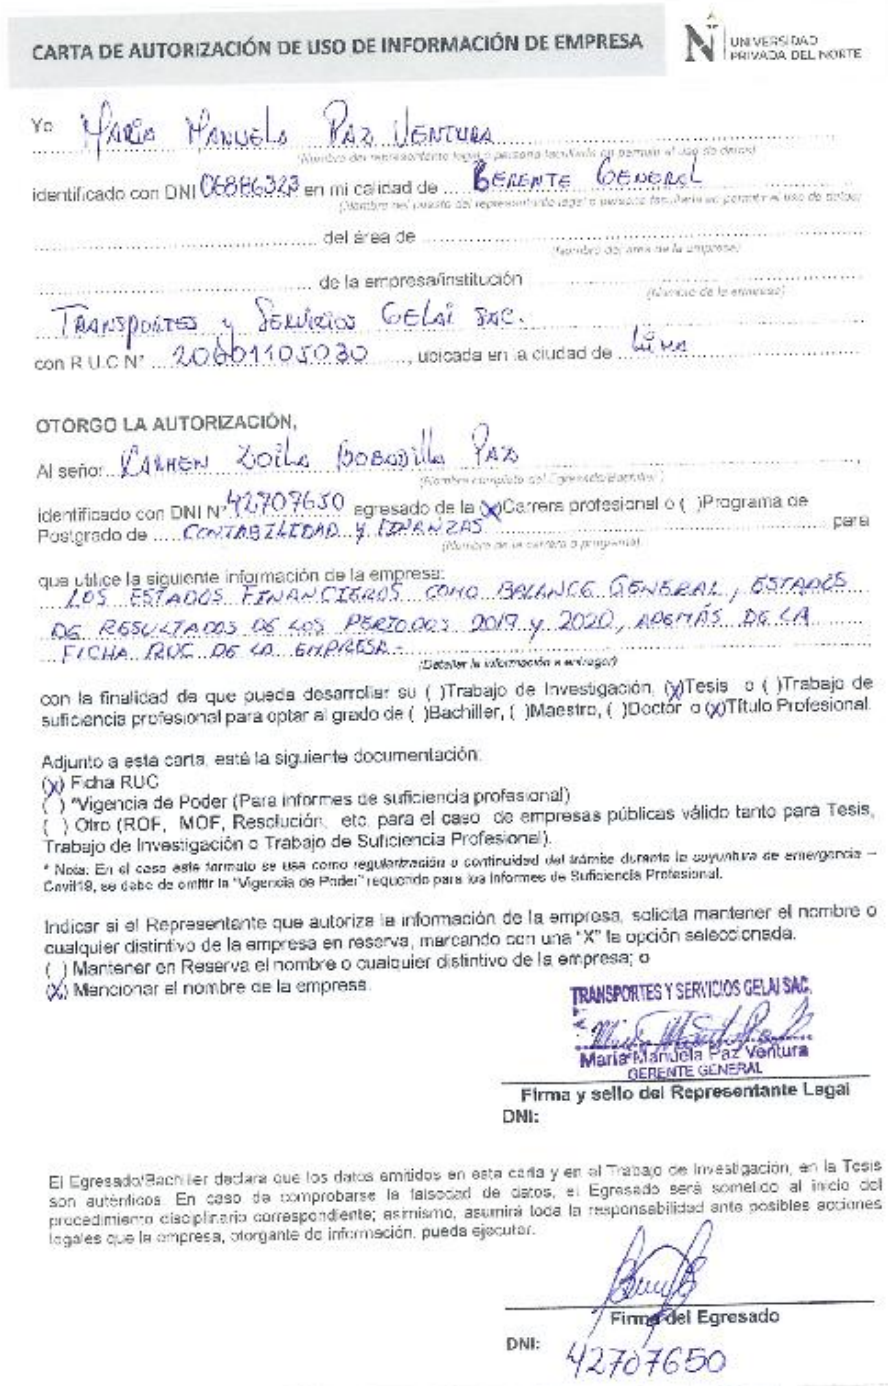 CARTA DE AUTORIZACIÓN DE USO DE INFORMACIÓN DE EMPRESA
UNIVERSIDAD
PRIVADA DEL NORTE
Yo MARIA MANUELA PAZ VENTURA
(Nombre del representante legal o persona facultada en permitir el uso de datos)
identificado con DNI 06886323 en mi calidad de GERENTE GENERAL
(Nombre del puesto del representante legal o persona facultada en permitir el uso de datos)
del área de
(Nombre del área de la empresa)
de la empresa/institución
(Nombre de la empresa)
TRANSPORTES y SERVICIOS GELAI SAC.
con R.U.C N° 20601105030, ubicada en la ciudad de Lima
OTORGO LA AUTORIZACIÓN,
Al señor CARMEN ZOILA BOBADILLA PAZ
(Nombre completo del Egresado/Bachiller)
identificado con DNI N° 42707650 egresado de la (X)Carrera profesional o ( )Programa de
Postgrado de CONTABILIDAD Y FINANZAS para
(Nombre de la carrera o programa)
que utilice la siguiente información de la empresa:
LOS ESTADOS FINANCIEROS COMO BALANCE GENERAL, ESTADOS
DE RESULTADOS DE LOS PERIODOS 2019 y 2020, ADEMÁS DE LA
FICHA RUC DE LA EMPRESA-
(Detallar la información a entregar)
con la finalidad de que pueda desarrollar su ( )Trabajo de Investigación, (X)Tesis o ( )Trabajo de
suficiencia profesional para optar al grado de ( )Bachiller, ( )Maestro, ( )Doctor o (X)Título Profesional.
Adjunto a esta carta, está la siguiente documentación:
(X) Ficha RUC
( ) *Vigencia de Poder (Para informes de suficiencia profesional)
( ) Otro (ROF, MOF, Resolución, etc. para el caso de empresas públicas válido tanto para Tesis,
Trabajo de Investigación o Trabajo de Suficiencia Profesional).
* Nota: En el caso este formato se use como regularización o continuidad del trámite durante la coyuntura de emergencia –
Covid19, se debe de omitir la "Vigencia de Poder" requerido para los Informes de Suficiencia Profesional.
Indicar si el Representante que autoriza la información de la empresa, solicita mantener el nombre o
cualquier distintivo de la empresa en reserva, marcando con una "X" la opción seleccionada.
( ) Mantener en Reserva el nombre o cualquier distintivo de la empresa; o
(X) Mencionar el nombre de la empresa.
TRANSPORTES Y SERVICIOS GELAI SAC.
María Manuela Paz Ventura
GERENTE GENERAL
Firma y sello del Representante Legal
DNI:
El Egresado/Bachiller declara que los datos emitidos en esta carta y en el Trabajo de Investigación, en la Tesis
son auténticos. En caso de comprobarse la falsedad de datos, el Egresado será sometido al inicio del
procedimiento disciplinario correspondiente; asimismo, asumirá toda la responsabilidad ante posibles acciones
legales que la empresa, otorgante de información, pueda ejecutar.
Firma del Egresado
DNI:
42707650